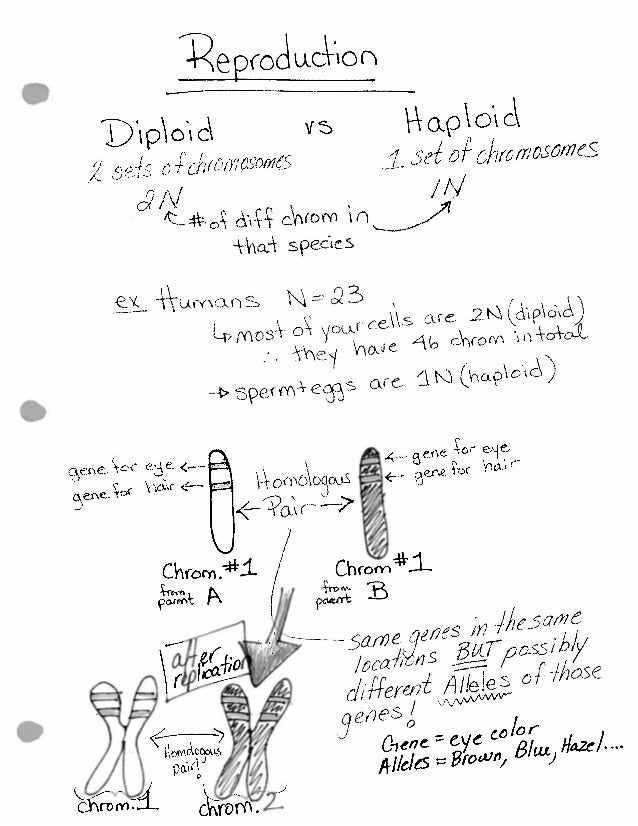 Reproduction
Diploid vs Haploid
2 sets of chromosomes 1 set of chromosomes
2N 1N
# of diff chrom in
that species
ex Humans N=23
↳ most of your cells are 2N (diploid)
∴ they have 46 chrom in total
→ sperm + eggs are 1N (haploid)
gene for eye
gene for hair
Homologous
Pair
gene for eye
gene for hair
Chrom. #1
from
parent A
Chrom #1
from
parent B
after
replication
Same genes in the same
locations BUT possibly
different Alleles of those
genes!
Gene = eye color
Alleles = Brown, Blue, Hazel....
Homologous
pair!
chrom. 1
chrom. 2